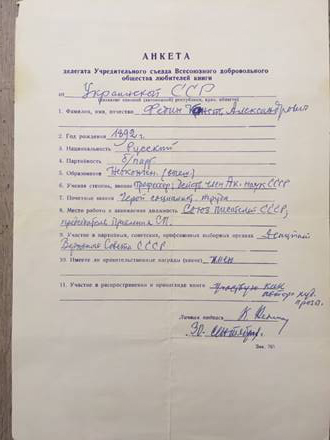 АНКЕТА
делегата Учредительного съезда Всесоюзного добровольного
общества любителей книги
от Украинской ССР
(название союзной (автономной) республики, края, области)
1. Фамилия, имя, отчество Федин Конст. Александрович
2. Год рождения 1892 г.
3. Национальность Русский
4. Партийность б/парт
5. Образование
6. Ученая степень, звание профессор, действ. член Ак. наук СССР
7. Почетные звания Герой социалист. труда
8. Место работы и занимаемая должность Союз писателей СССР,
председатель Правления СП.
9. Участие в партийных, советских, профсоюзных выборных органах Депутат
Верховного Совета СССР
10. Имеете ли правительственные награды (какие) имею
11. Участие в распространении и пропаганде книги участвую как
автор худ.
проза.
Личная подпись К Федин
30. сентября.
Зак. 765